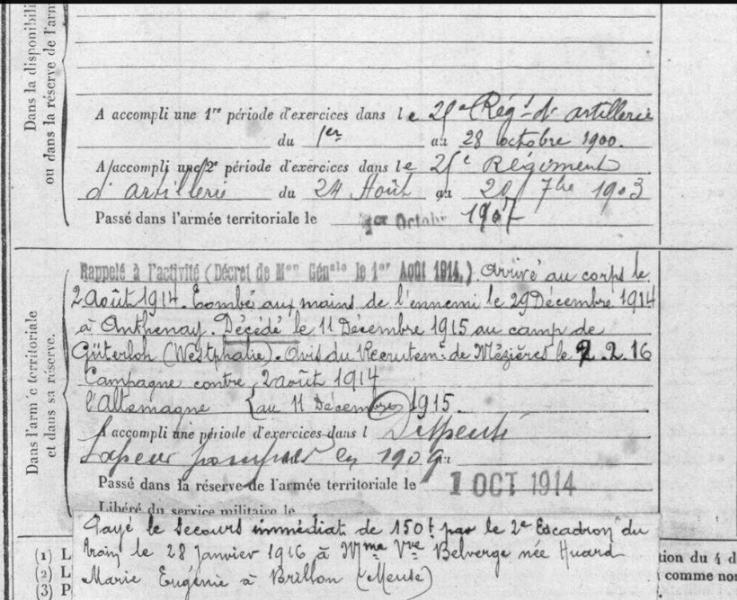 Dans la disponibili
ou dans la réserve de l'arm
A accompli une 1re période d'exercices dans le 25e Régt d'artillerie
du 1er au 28 octobre 1900.
A accompli une 2e période d'exercices dans le 25e Régiment
d'artillerie du 24 Août au 20 7bre 1903
Passé dans l'armée territoriale le 1er Octobr 1907
Dans l'armée territoriale
et dans sa réserve.
Rappelé à l'activité (Décret de Mon Génale le 1er Août 1914.) Arrivé au corps le
2 août 1914. Tombé aux mains de l'ennemi le 29 Décembre 1914
à Anthenay. Décédé le 11 Décembre 1915 au camp de
Güterloh (Westphalie). Avis du Recrutemt de Mézières le 2.2.16
Campagne contre 2 août 1914
l'Allemagne { au 11 Décembre 1915.
A accompli une période d'exercices dans l Dispensé
Sapeur pompier en 1909
Passé dans la réserve de l'armée territoriale le 1 OCT 1914
Libéré du service militaire le
Payé le secours immédiat de 150f par le 2e Escadron du
train le 28 Janvier 1916 à Mme Vve Belverge née Huard
Marie Eugénie à Brillon (Meuse)
(1) L
(2) L
(3) P
tion du 4 d
comme nor